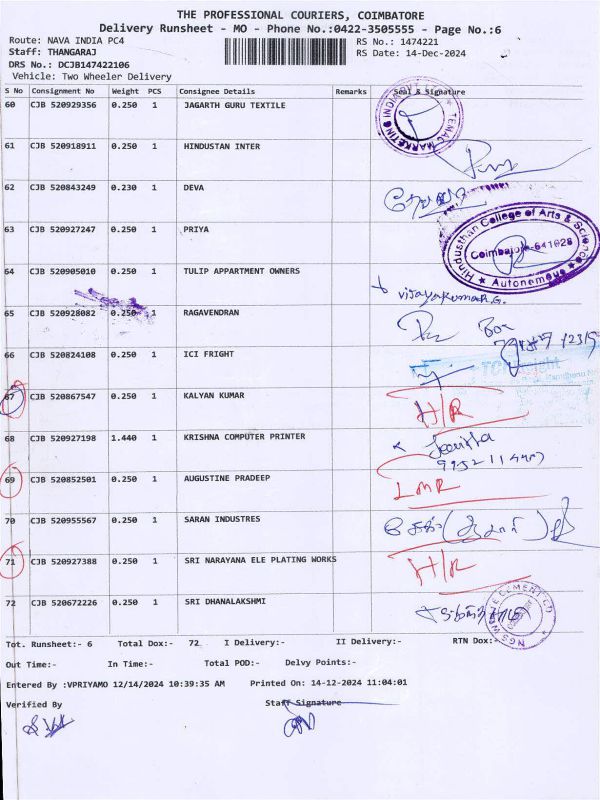 THE PROFESSIONAL COURIERS, COIMBATORE
Delivery Runsheet - MO - Phone No.:0422-3505555 - Page No.:6
Route: NAVA INDIA PC4 RS No.: 1474221
Staff: THANGARAJ RS Date: 14-Dec-2024
DRS No.: DCJB147422106
Vehicle: Two Wheeler Delivery
S No Consignment No Weight PCS Consignee Details Remarks Seal & Signature
60 CJB 520929356 0.250 1 JAGARTH GURU TEXTILE
61 CJB 520918911 0.250 1 HINDUSTAN INTER
62 CJB 520843249 0.230 1 DEVA
63 CJB 520927247 0.250 1 PRIYA
Hindusthan College of Arts & Science
Coimbatore-641028
★ Autonomous ★
64 CJB 520905010 0.250 1 TULIP APPARTMENT OWNERS
Vijayakumar.G.
65 CJB 520928082 0.250 1 RAGAVENDRAN
66 CJB 520824108 0.250 1 ICI FRIGHT
67 CJB 520867547 0.250 1 KALYAN KUMAR H/R
68 CJB 520927198 1.440 1 KRISHNA COMPUTER PRINTER
69 CJB 520852501 0.250 1 AUGUSTINE PRADEEP LMR
70 CJB 520955567 0.250 1 SARAN INDUSTRES
71 CJB 520927388 0.250 1 SRI NARAYANA ELE PLATING WORKS H/R
72 CJB 520672226 0.250 1 SRI DHANALAKSHMI
Tot. Runsheet:- 6 Total Dox:- 72 I Delivery:- II Delivery:- RTN Dox:-
Out Time:- In Time:- Total POD:- Delvy Points:-
Entered By :VPRIYAMO 12/14/2024 10:39:35 AM Printed On: 14-12-2024 11:04:01
Verified By Staff Signature